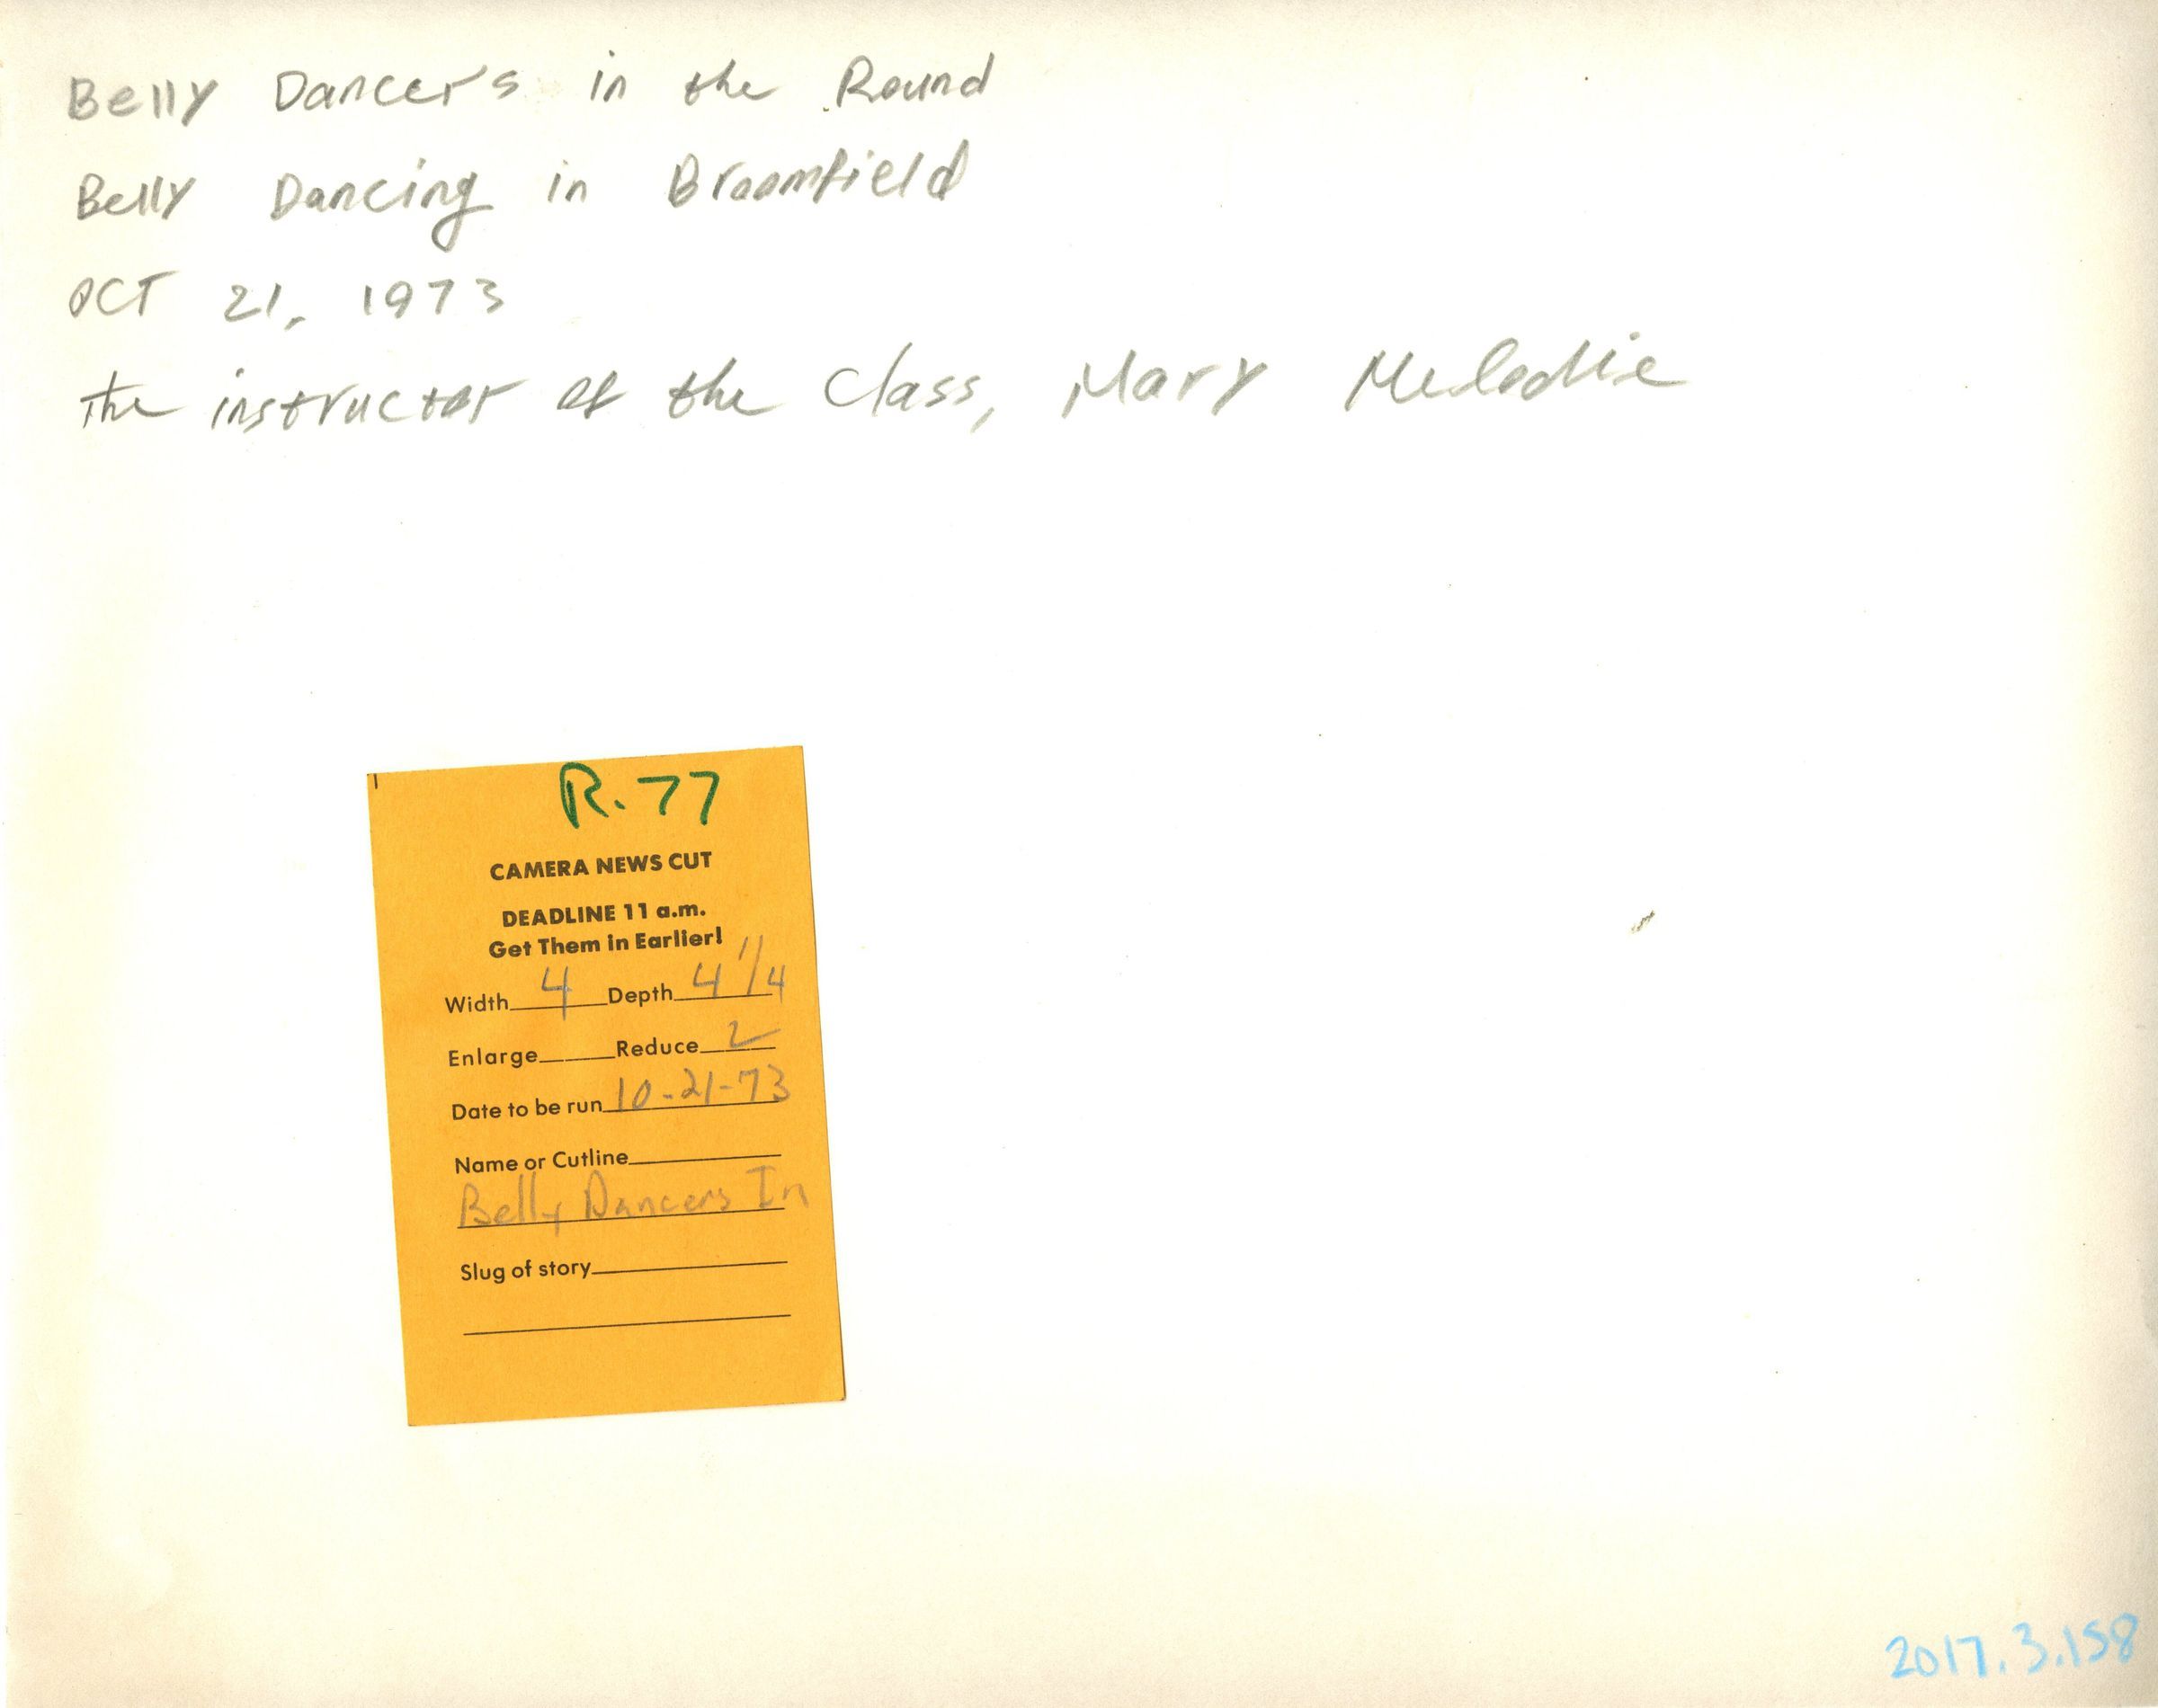 Belly Dancers in the Round
Belly Dancing in Broomfield
OCT 21, 1973
The instructor of the Class, Mary Melodie
R. 77
CAMERA NEWS CUT
DEADLINE 11 a.m.
Get Them in Earlier!
Width 4 Depth 4 1/4
Enlarge Reduce
Date to be run 10-21-73
Name or Cutline
Belly Dancers In
Slug of story
2017.3.158